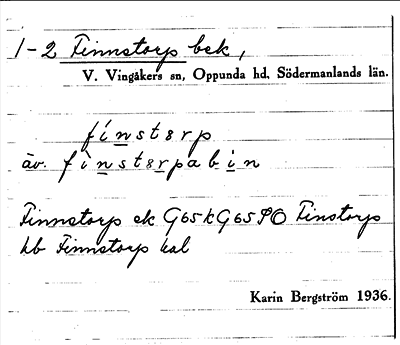 1-2 Finnstorp bek,
V. Vingåkers sn, Oppunda hd, Södermanlands län.
fínstɛrp
äv. fìnstɛrpabin
Finnstorp ek G65k G65SO Finstorp
hb Finnstorp kal
Karin Bergström 1936.